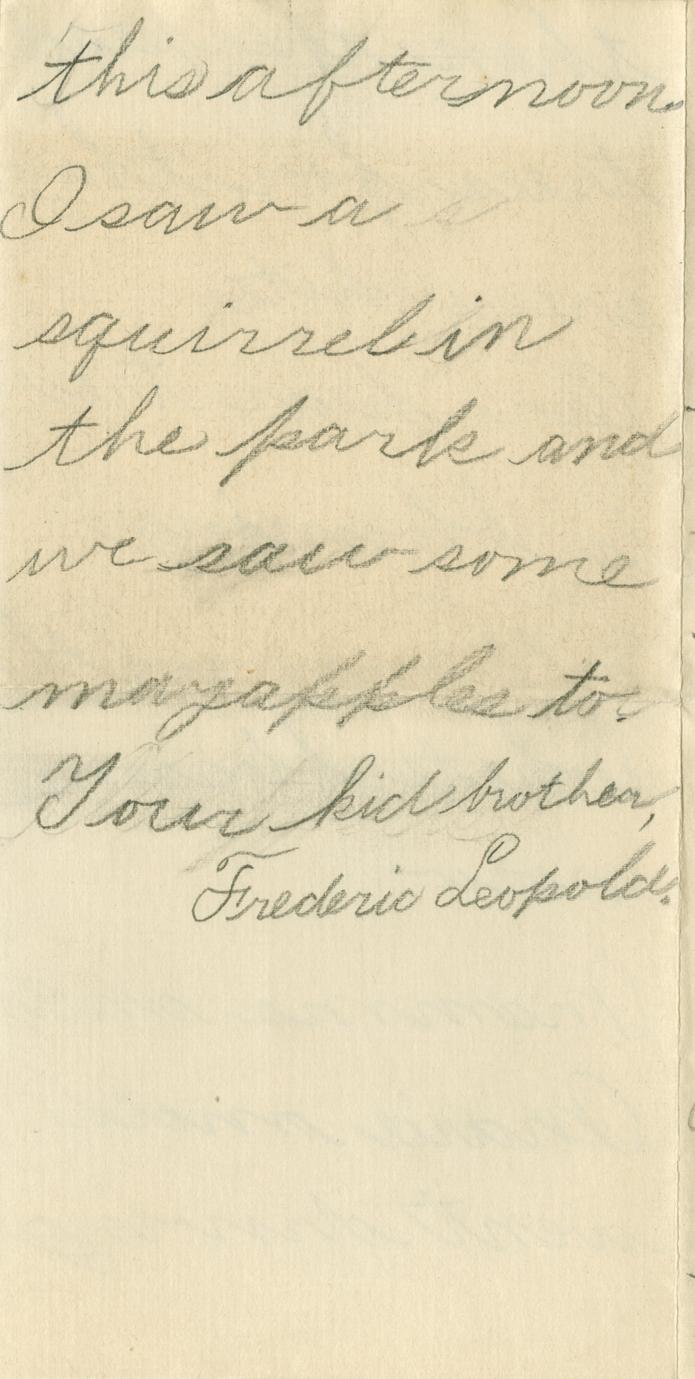 this afternoon.
I saw a
squirrel in
the park and
we saw some
mayapples to.
Your kid brother,
Frederic Leopold.